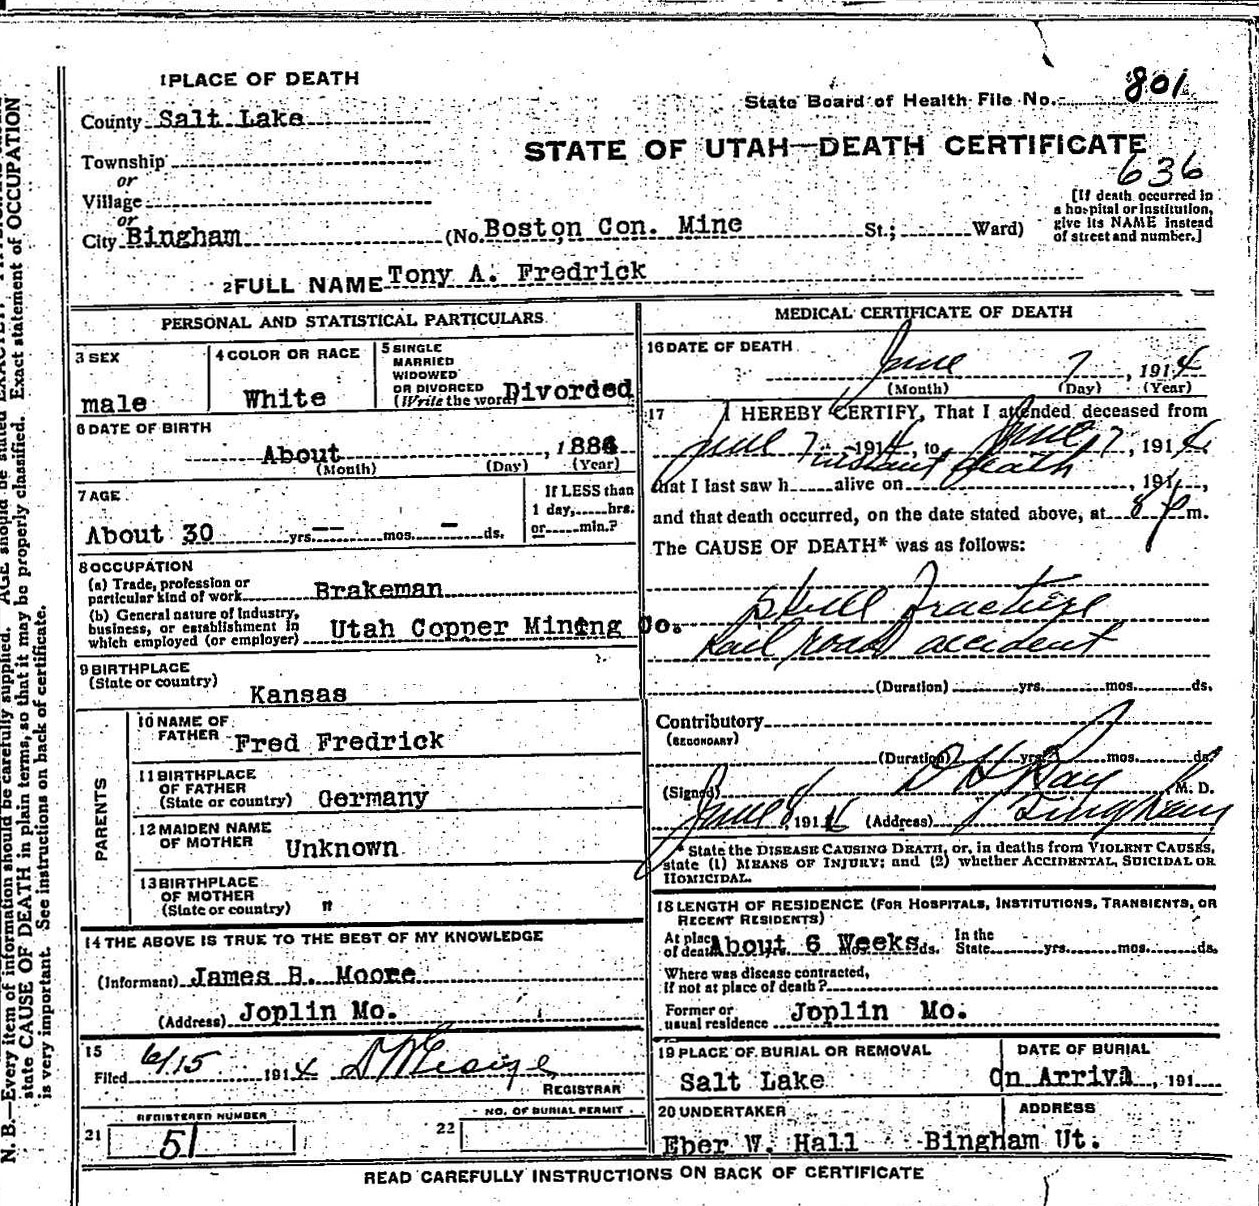 1 PLACE OF DEATH
State Board of Health File No. 801
County Salt Lake
STATE OF UTAH—DEATH CERTIFICATE
636
Township
or
Village
or
City Bingham (No. Boston Con. Mine St.; Ward)
[If death occurred in
a hospital or institution,
give its NAME instead
of street and number.]
2 FULL NAME Tony A. Fredrick
PERSONAL AND STATISTICAL PARTICULARS
3 SEX
male
4 COLOR OR RACE
White
5 SINGLE
MARRIED
WIDOWED
OR DIVORCED
(Write the word) Divorded
6 DATE OF BIRTH
About , 1884
(Month) (Day) (Year)
7 AGE
About 30 yrs. -- mos. - ds.
If LESS than
1 day, hrs.
or min.?
8 OCCUPATION
(a) Trade, profession or
particular kind of work Brakeman
(b) General nature of Industry,
business, or establishment in
which employed (or employer) Utah Copper Mining Co.
9 BIRTHPLACE
(State or country)
Kansas
PARENTS
10 NAME OF
FATHER Fred Fredrick
11 BIRTHPLACE
OF FATHER
(State or country) Germany
12 MAIDEN NAME
OF MOTHER Unknown
13 BIRTHPLACE
OF MOTHER
(State or country) "
14 THE ABOVE IS TRUE TO THE BEST OF MY KNOWLEDGE
(Informant) James B. Moore
(Address) Joplin Mo.
15
Filed 6/15 1914
REGISTRAR
REGISTERED NUMBER
21 51
NO. OF BURIAL PERMIT
22
MEDICAL CERTIFICATE OF DEATH
16 DATE OF DEATH
June 7, 1914
(Month) (Day) (Year)
17 I HEREBY CERTIFY, That I attended deceased from
June 7 1914, to June 7, 1914
instant death
that I last saw h alive on , 191 ,
and that death occurred, on the date stated above, at 8 p m.
The CAUSE OF DEATH* was as follows:
Skull Fracture
Rail road accident
(Duration) yrs. mos. ds.
Contributory
(SECONDARY)
(Duration) yrs. mos. ds.
(Signed) D H Ray M. D.
June 8, 1914 (Address) Bingham
* State the DISEASE CAUSING DEATH, or, in deaths from VIOLENT CAUSES,
state (1) MEANS OF INJURY; and (2) whether ACCIDENTAL, SUICIDAL OR
HOMICIDAL.
18 LENGTH OF RESIDENCE (FOR HOSPITALS, INSTITUTIONS, TRANSIENTS, OR
RECENT RESIDENTS)
At place
of death About 6 Weeks ds. In the
State yrs. mos. ds.
Where was disease contracted,
if not at place of death?
Former or
usual residence Joplin Mo.
19 PLACE OF BURIAL OR REMOVAL
Salt Lake
DATE OF BURIAL
On Arriva , 191
20 UNDERTAKER
Eber W. Hall
ADDRESS
Bingham Ut.
READ CAREFULLY INSTRUCTIONS ON BACK OF CERTIFICATE
N. B.—Every item of information should be carefully supplied. AGE should be stated EXACTLY.
state CAUSE OF DEATH in plain terms, so that it may be properly classified. Exact statement of OCCUPATION
is very important. See instructions on back of certificate.